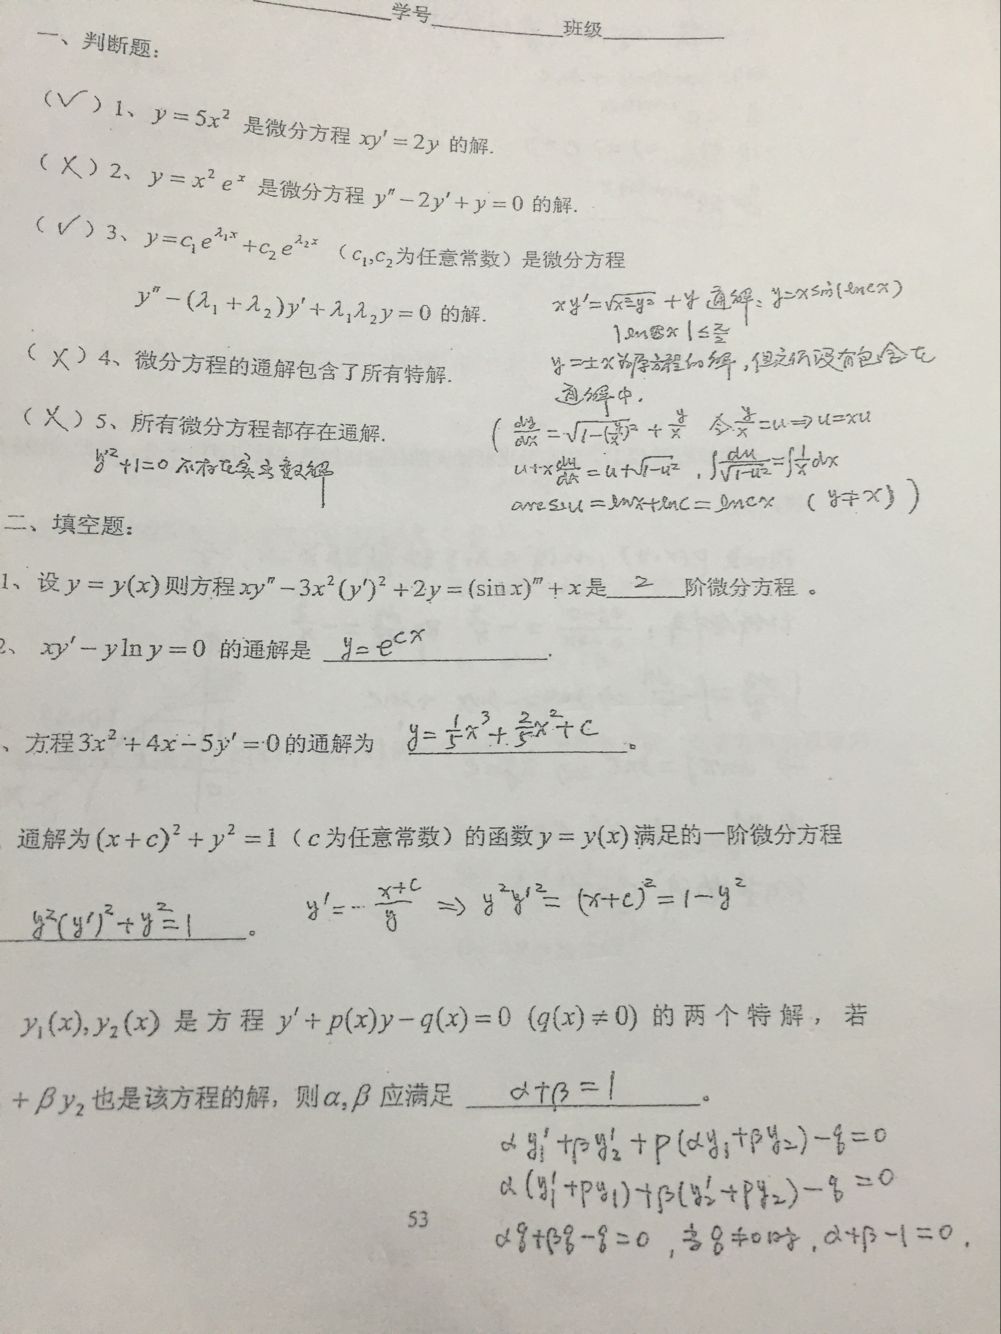 学号 班级
一、判断题:
(√)1、y=5x² 是微分方程 xy′=2y 的解.
(X)2、y=x² eˣ 是微分方程 y″-2y′+y=0 的解.
(√)3、y=c₁e^{λ₁x}+c₂e^{λ₂x} (c₁,c₂为任意常数)是微分方程
y″-(λ₁+λ₂)y′+λ₁λ₂y=0 的解.
xy′=√(x²-y²)+y 通解: y=x sin(lncx)
|lncx|≤π/2
(X)4、微分方程的通解包含了所有特解.
y=±x为原方程的解,但它们没有包含在
通解中.
(X)5、所有微分方程都存在通解.
(dy/dx=√(1-(y/x)²)+y/x 令y/x=u⇒u=xu
y′²+1=0 不存在实函数解
u+x du/dx=u+√(1-u²), ∫du/√(1-u²)=∫1/x dx
arcsinu=lnx+lnc=lncx (y≠x))
二、填空题:
1、设 y=y(x)则方程xy″-3x²(y′)²+2y=(sin x)‴+x是 2 阶微分方程。
2、 xy′-y ln y=0 的通解是 y=e^{cx}.
、方程3x²+4x-5y′=0的通解为 y=1/5x³+2/5x²+c。
通解为(x+c)²+y²=1(c为任意常数)的函数y=y(x)满足的一阶微分方程
y′=-(x+c)/y ⇒ y²y′²=(x+c)²=1-y²
y²(y′)²+y²=1。
y₁(x),y₂(x) 是方程 y′+p(x)y-q(x)=0 (q(x)≠0) 的两个特解,若
+βy₂也是该方程的解,则α,β应满足 α+β=1。
αy₁′+βy₂′+p(αy₁+βy₂)-q=0
α(y₁′+py₁)+β(y₂′+py₂)-q=0
53
αq+βq-q=0,当q≠0时,α+β-1=0.